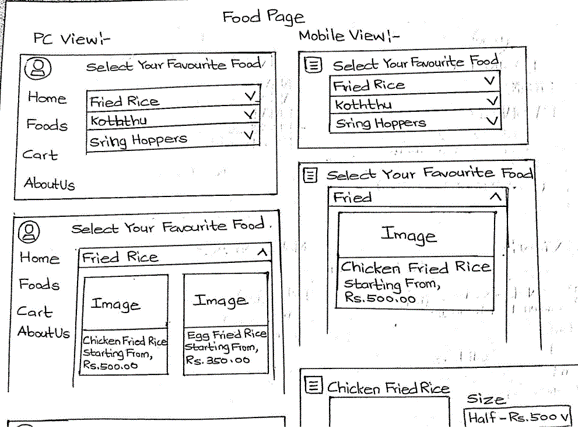 Food Page
PC View:-
Select Your Favourite Food
Home
Foods
Cart
About Us
Fried Rice
Koththu
Sring Hoppers
Select Your Favourite Food.
Home
Foods
Cart
About Us
Fried Rice
Image
Chicken Fried Rice
Starting From,
Rs.500.00
Image
Egg Fried Rice
Starting From,
Rs.350.00
Mobile View:-
Select Your Favourite Food
Fried Rice
Koththu
Sring Hoppers
Select Your Favourite Food
Fried
Image
Chicken Fried Rice
Starting From,
Rs.500.00
Chicken Fried Rice
Size
Half-Rs.500